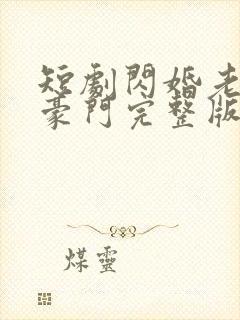 短劇閃婚老
豪門完整版
煤靈